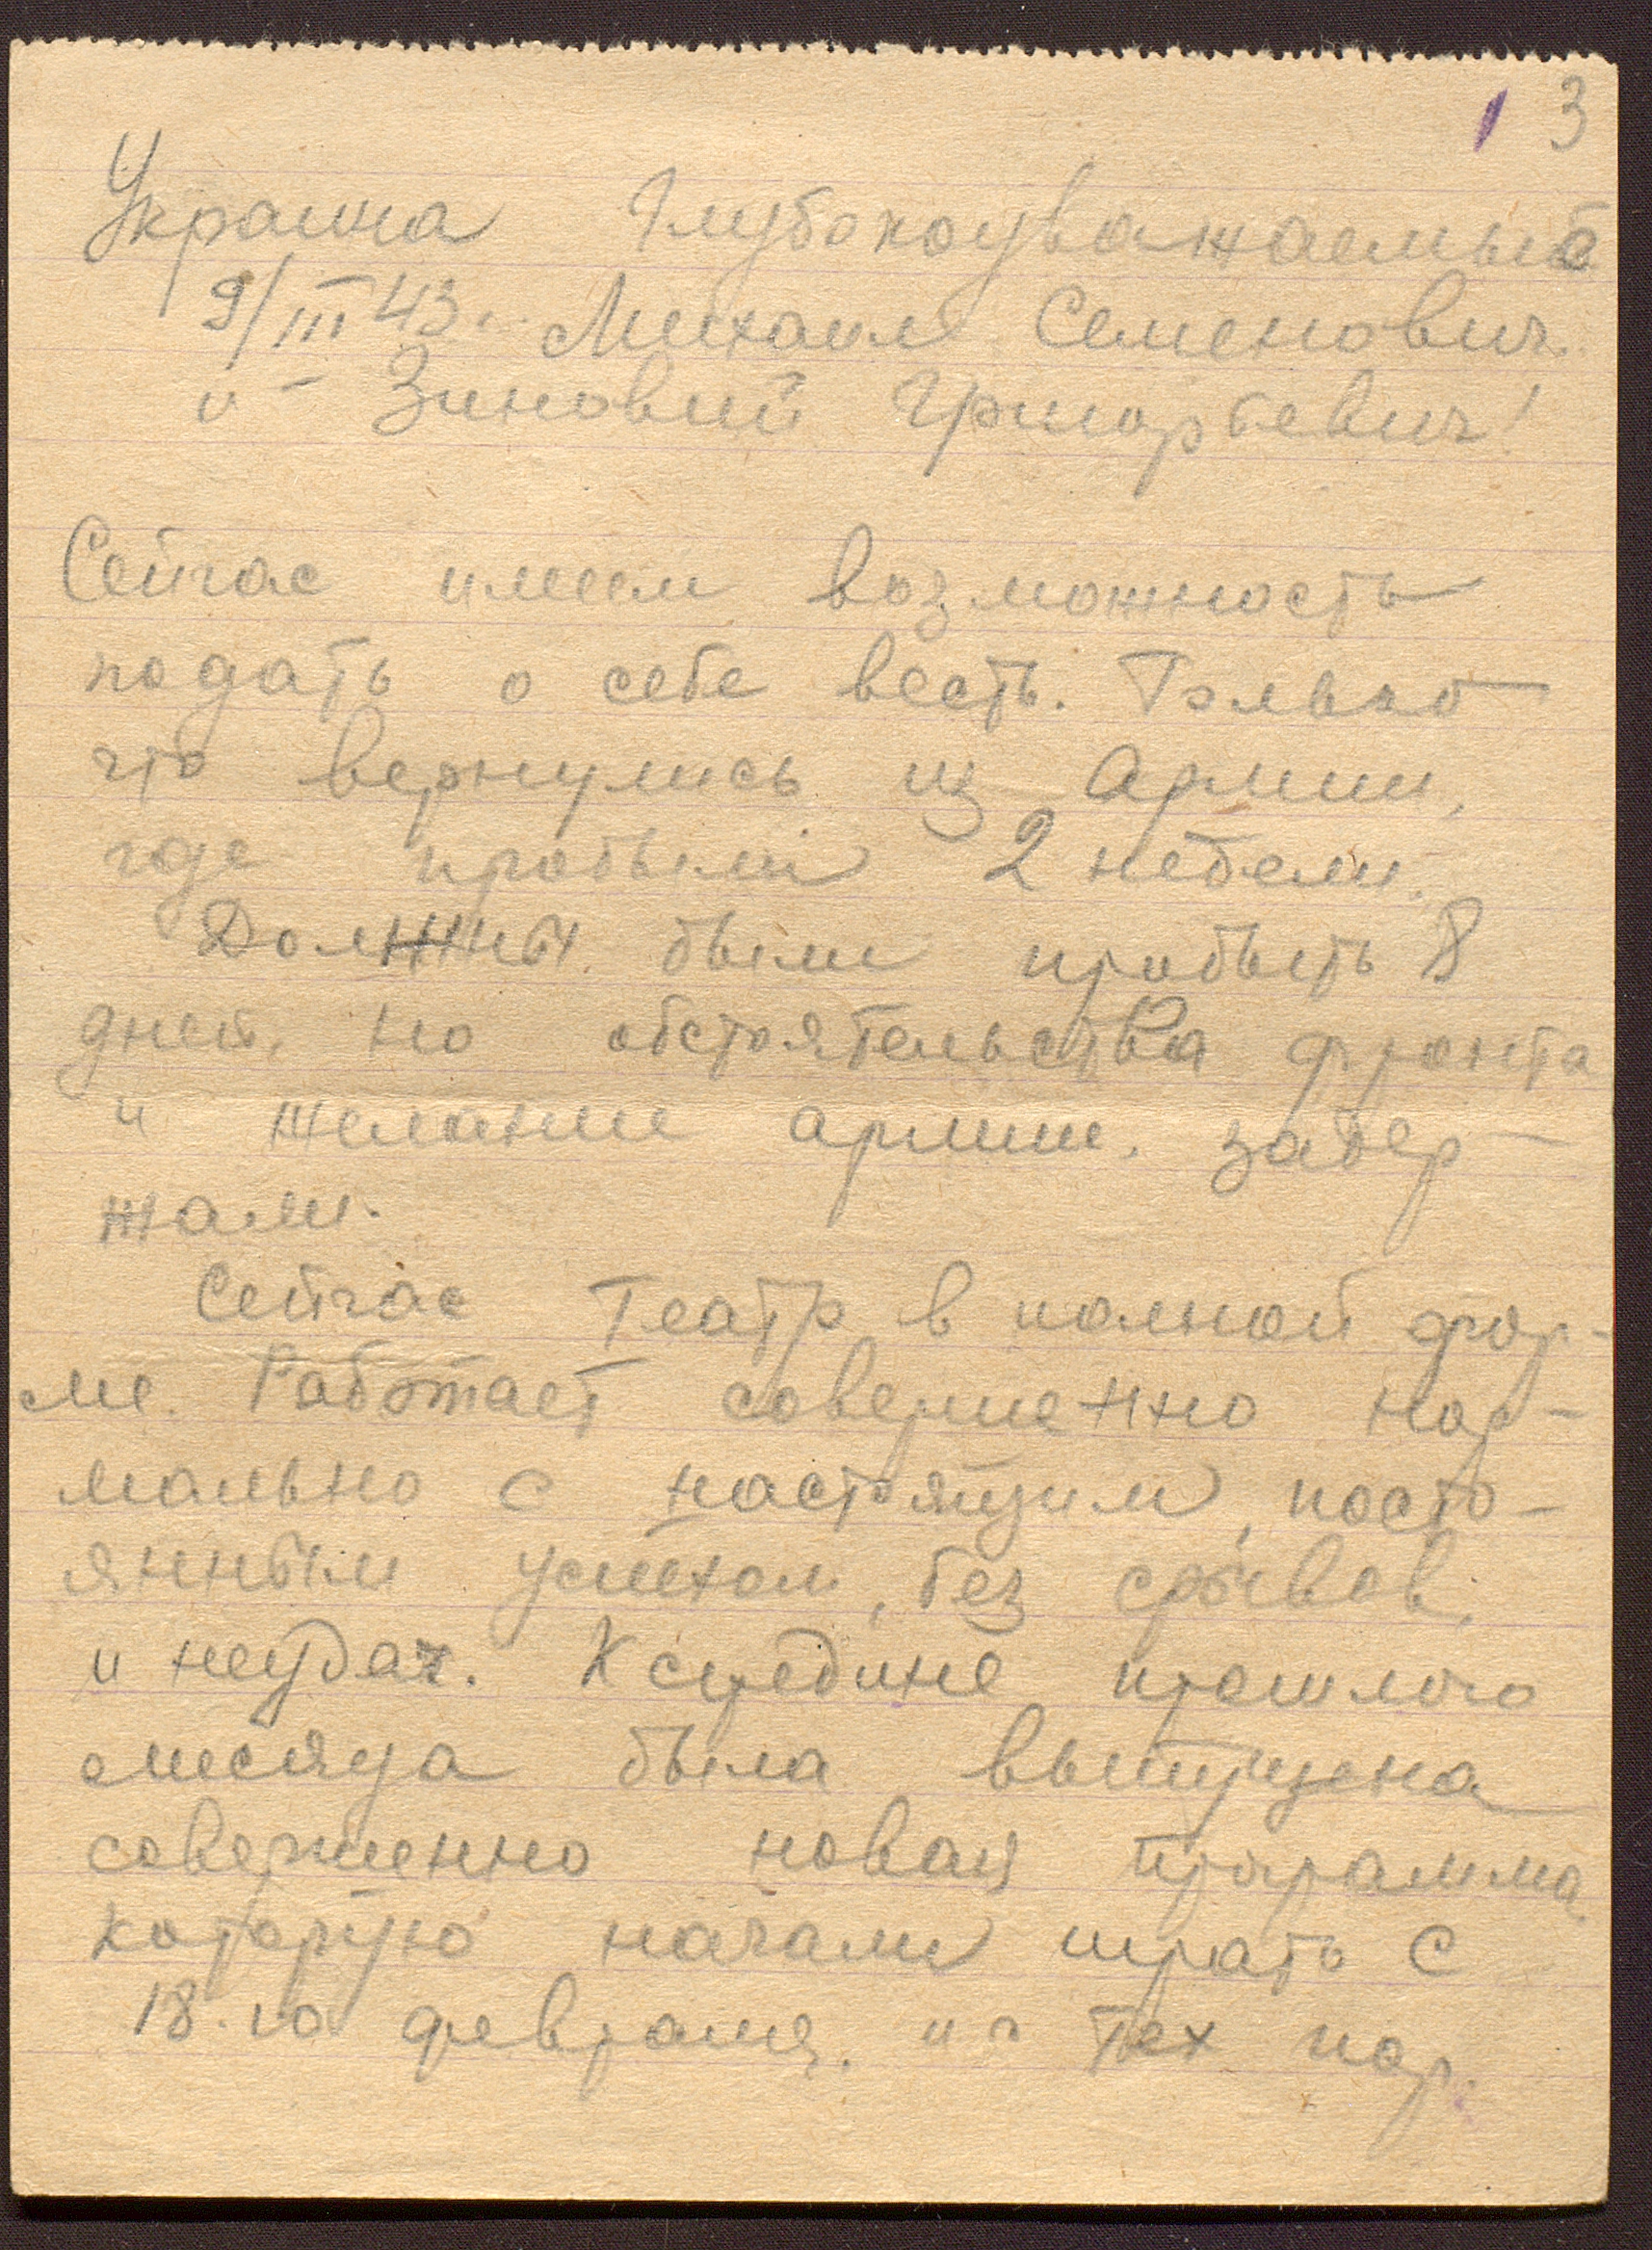 1 3
Украина Глубокоуважаемые
9/III 43 г. Михаил Семенович
и Зиновий Григорьевич!
Сейчас имеем возможность
подать о себе весть. Только
что вернулись из Армии,
где пробыли 2 недели.
Должны были пробыть 8
дней, но обстоятельства фронта
и желание армии. задер-
жали.
Сейчас Театр в полной фор-
ме. Работает совершенно нор-
мально с настоящим, посто-
янным успехом, без срывов,
и неудач. К средине прошлого
месяца была выпущена
совершенно новая программа,
которую начали играть с
18.го февраля. и с тех пор